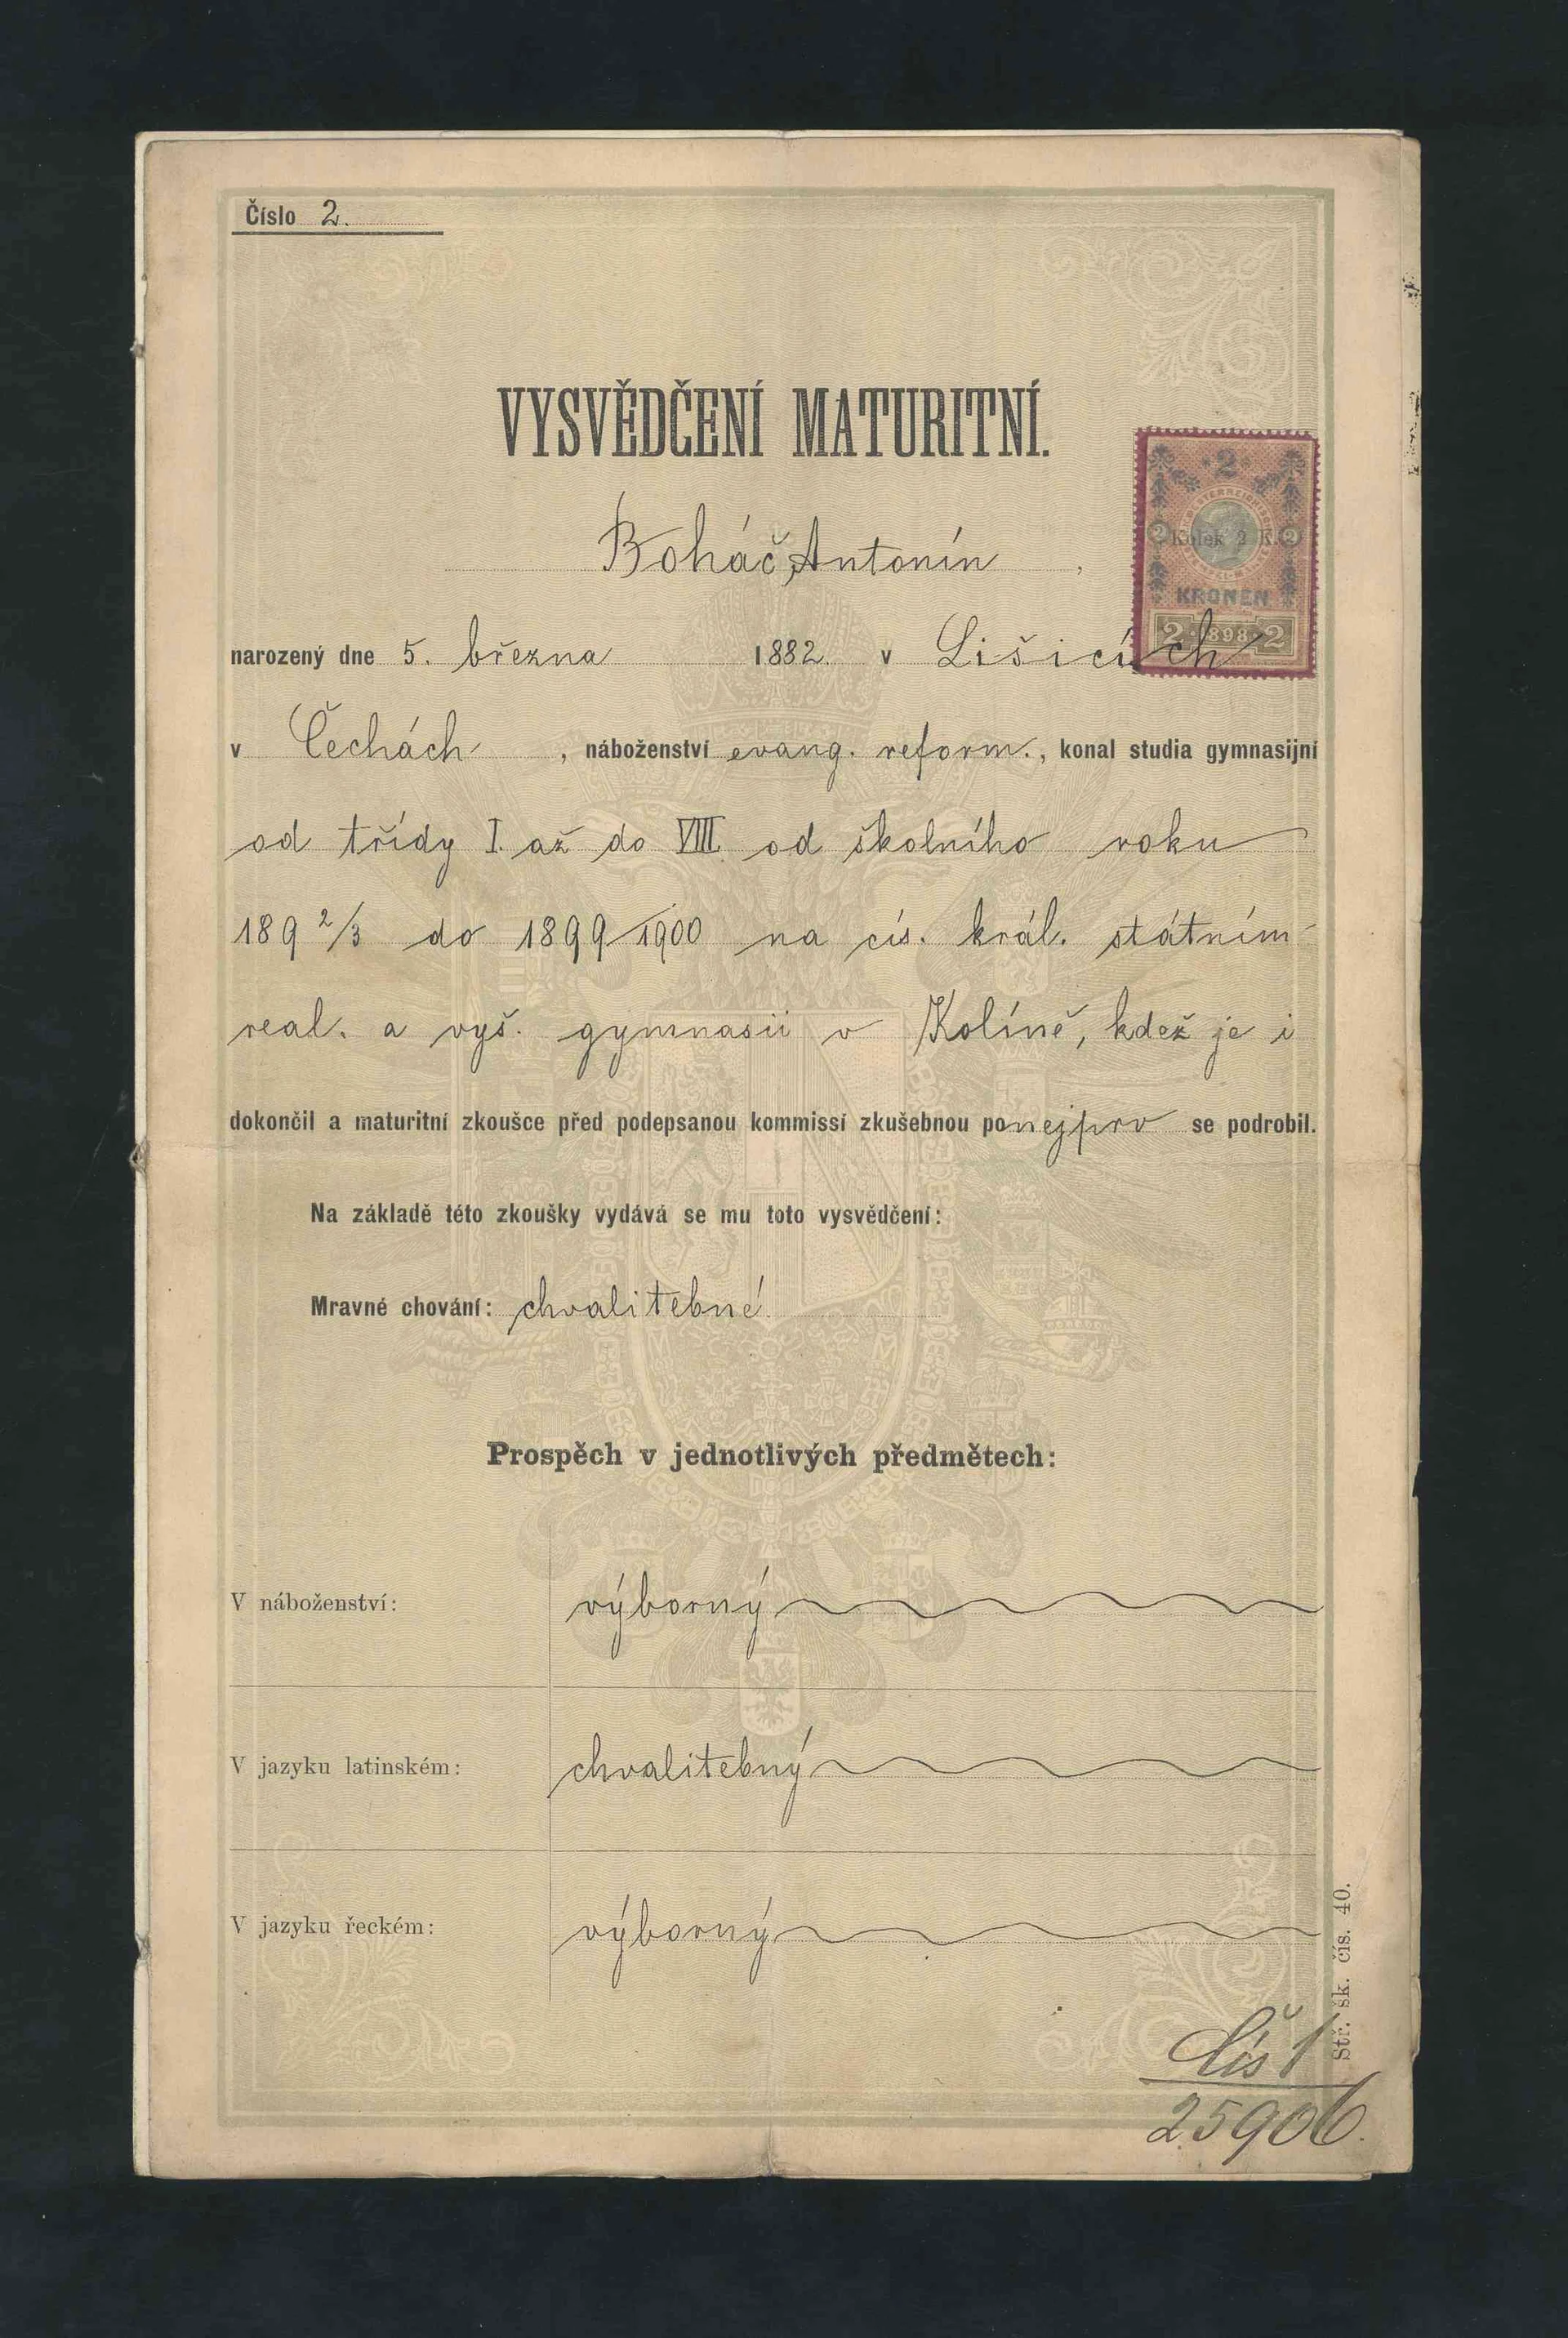 Číslo 2.
VYSVĚDČENÍ MATURITNÍ.
2
Boháč Antonín,
2 Kolek 2 K. 2
KRONEN
2 · 1898 · 2
narozený dne 5. března 1882. v Lišicích
v Čechách, náboženství evang. reform., konal studia gymnasijní
od třídy I. až do VIII. od školního roku
189 2/3 do 1899/1900 na cís. král. státním
real. a vyš. gymnasii v Kolíně, kdež je i
dokončil a maturitní zkoušce před podepsanou kommissí zkušebnou ponejprv se podrobil.
Na základě této zkoušky vydává se mu toto vysvědčení:
Mravné chování: chvalitebné.
Prospěch v jednotlivých předmětech:
V náboženství: výborný
V jazyku latinském: chvalitebný
V jazyku řeckém: výborný
Str. šk. čís. 40.
Čís 1
25906.